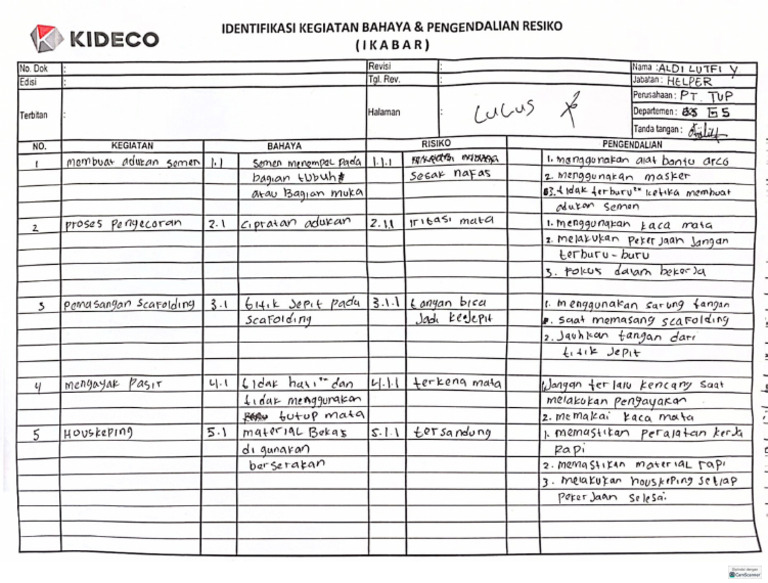 KIDECO
IDENTIFIKASI KEGIATAN BAHAYA & PENGENDALIAN RESIKO
(IKABAR)
No. Dok :
Revisi :
Nama : ALDI LUTFI Y
Edisi :
Tgl. Rev. :
Jabatan : HELPER
Perusahaan : PT. TUP
Terbitan :
Halaman :
LULUS
Departemen : GS
Tanda tangan :
NO. KEGIATAN BAHAYA RISIKO PENGENDALIAN
1 membuat adukan semen 1.1 Semen menempel pada 1.1.1 1. menggunakan alat bantu arco
bagian tubuh sesak nafas 2. menggunakan masker
atau Bagian muka 3. tidak terburu" ketika membuat
adukan semen
2 proses pengecoran 2.1 cipratan adukan 2.1.1 iritasi mata 1. menggunakan kaca mata
2. melakukan pekerjaan jangan
terburu-buru
3. Fokus dalam bekerja
3 Pemasangan scafolding 3.1 titik jepit pada 3.1.1 tangan bisa 1. menggunakan sarung tangan
scafolding jadi kejepit saat memasang scafolding
2. Jauhkan tangan dari
titik jepit
4 mengayak pasir 4.1 tidak hati" dan 4.1.1 terkena mata Jangan terlalu kencang saat
tidak menggunakan melakukan pengayakan
tutup mata 2. memakai kaca mata
5 Houskeping 5.1 material Bekas 5.1.1 tersandung 1. memastikan peralatan kerja
di gunakan rapi
berserakan 2. memastikan material rapi
3. melakukan houskeping setiap
pekerjaan selesai
CamScanner